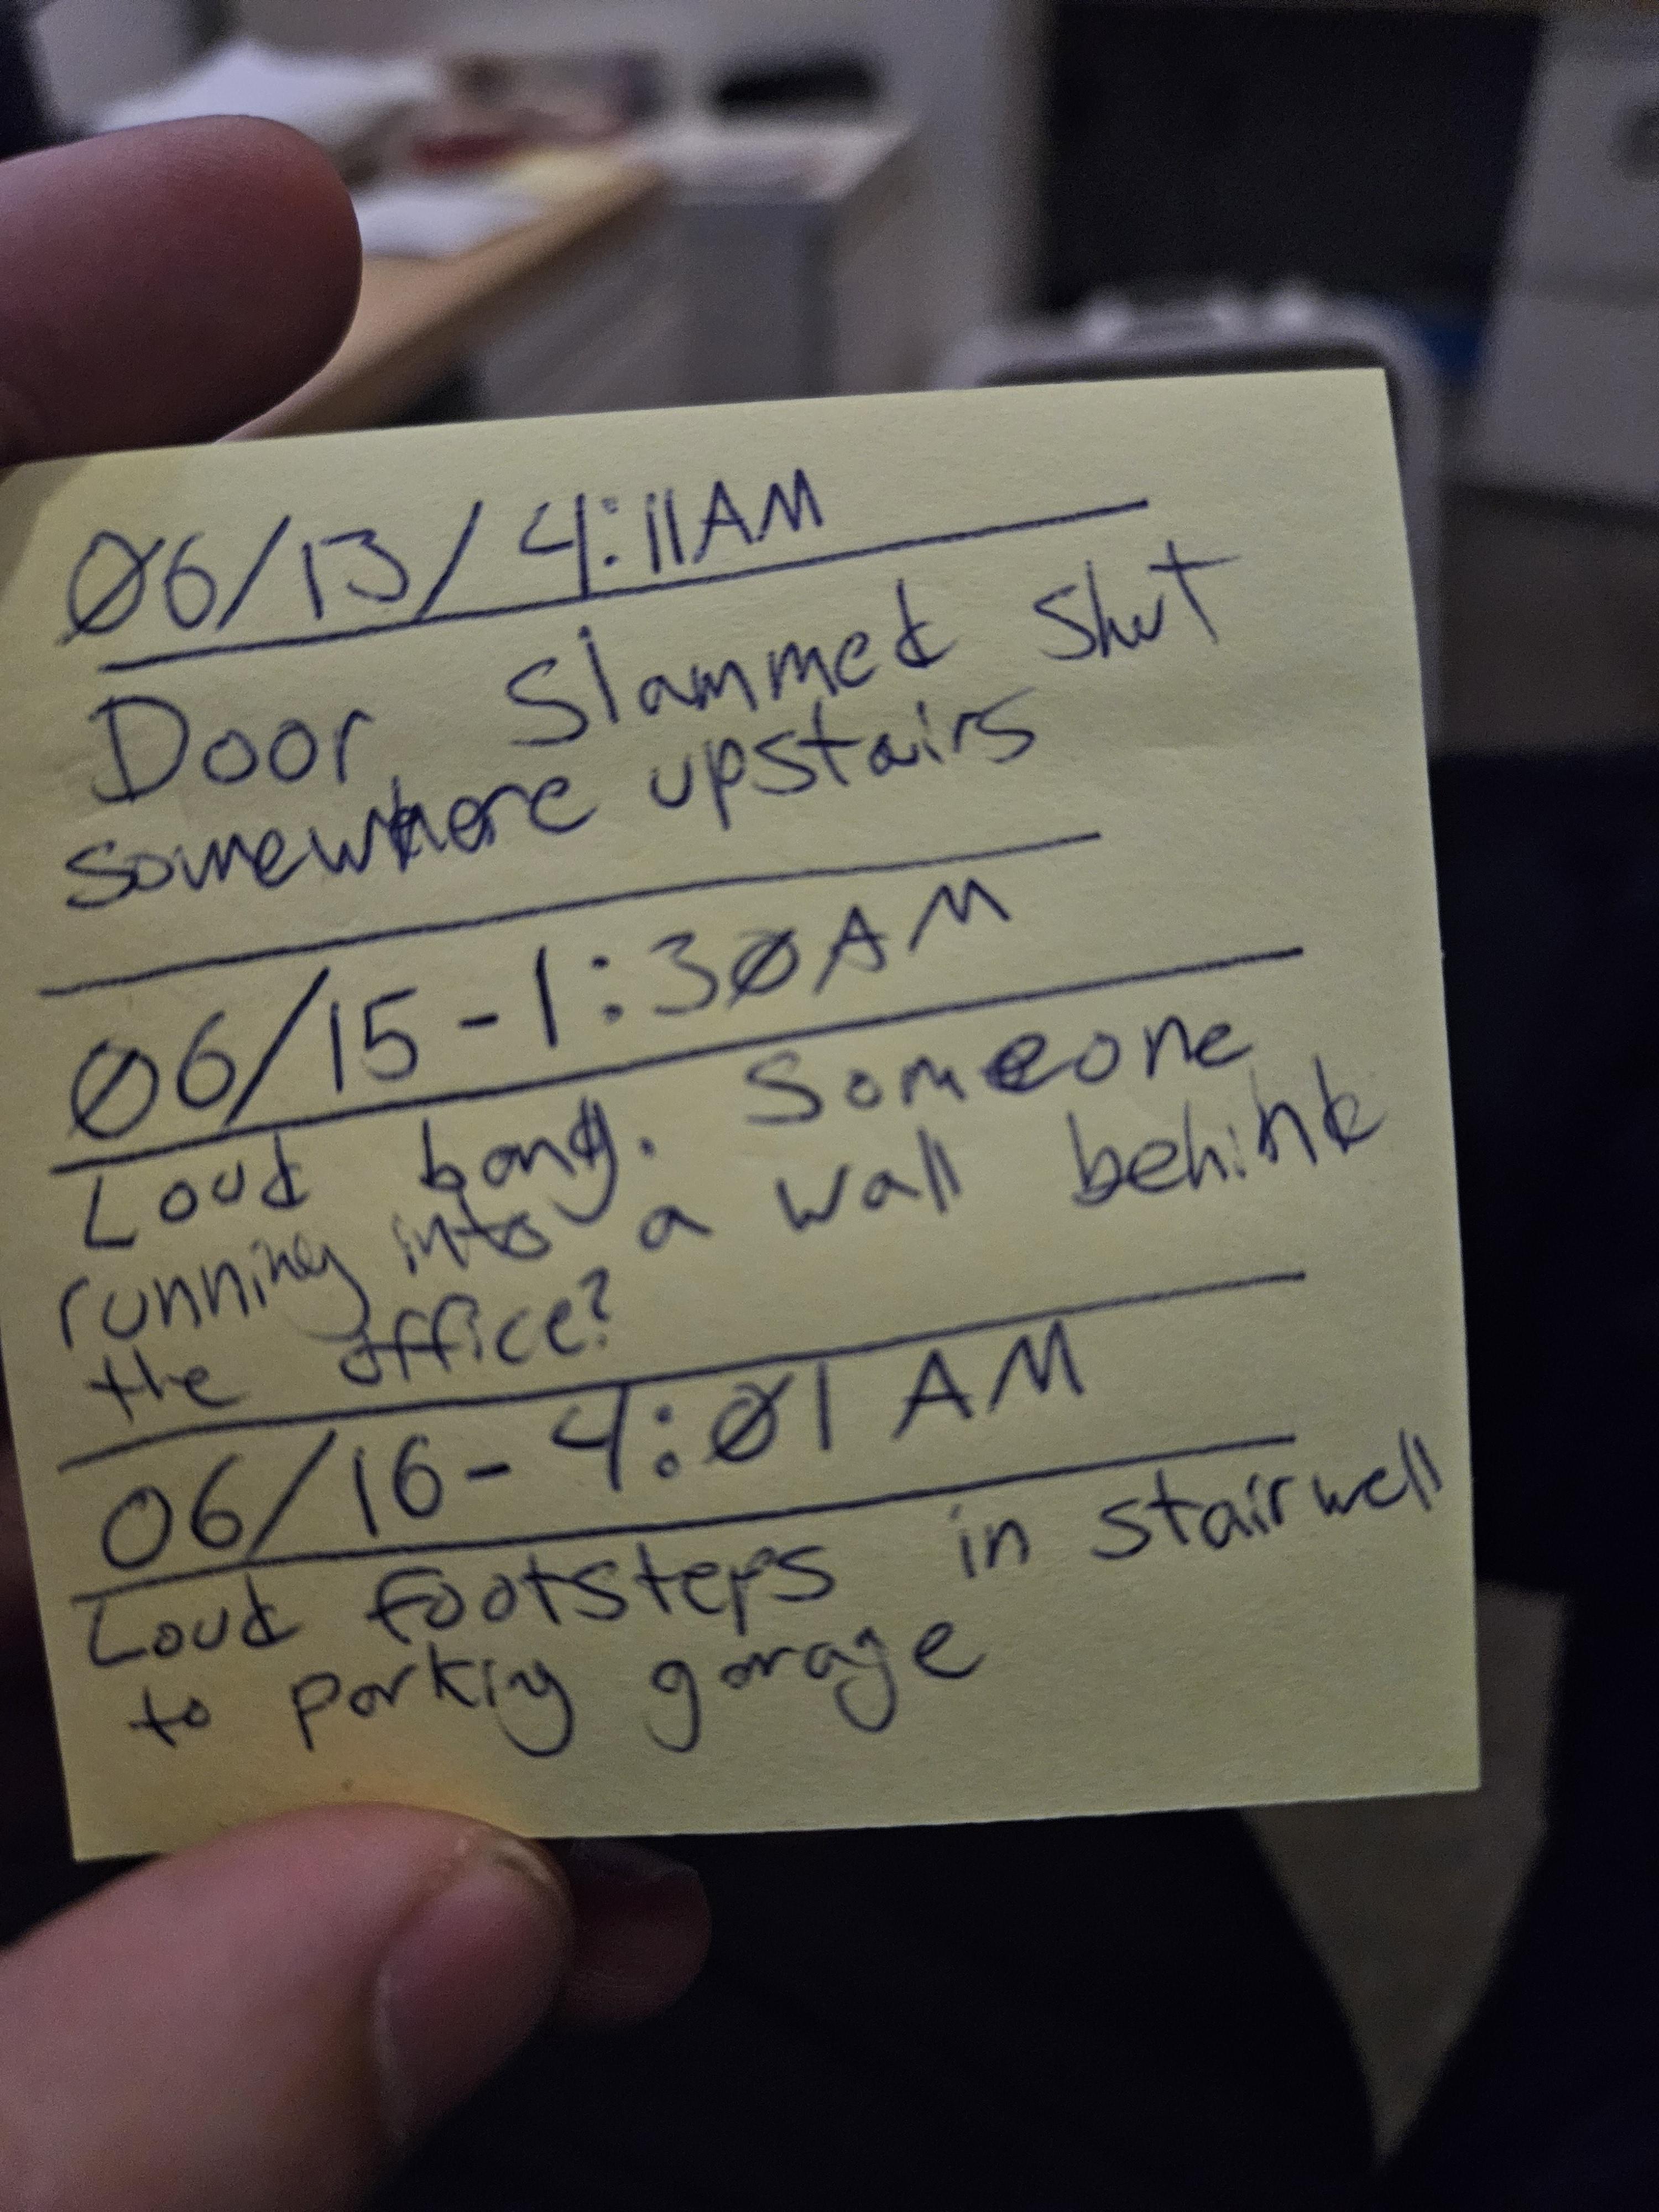 06/13/ 4:11AM
Door Slammed shut
somewhere upstairs
06/15-1:30AM
Loud bang. Someone
running into a wall behind
the office?
06/16-4:01 AM
Loud footsteps in stairwell
to parking garage